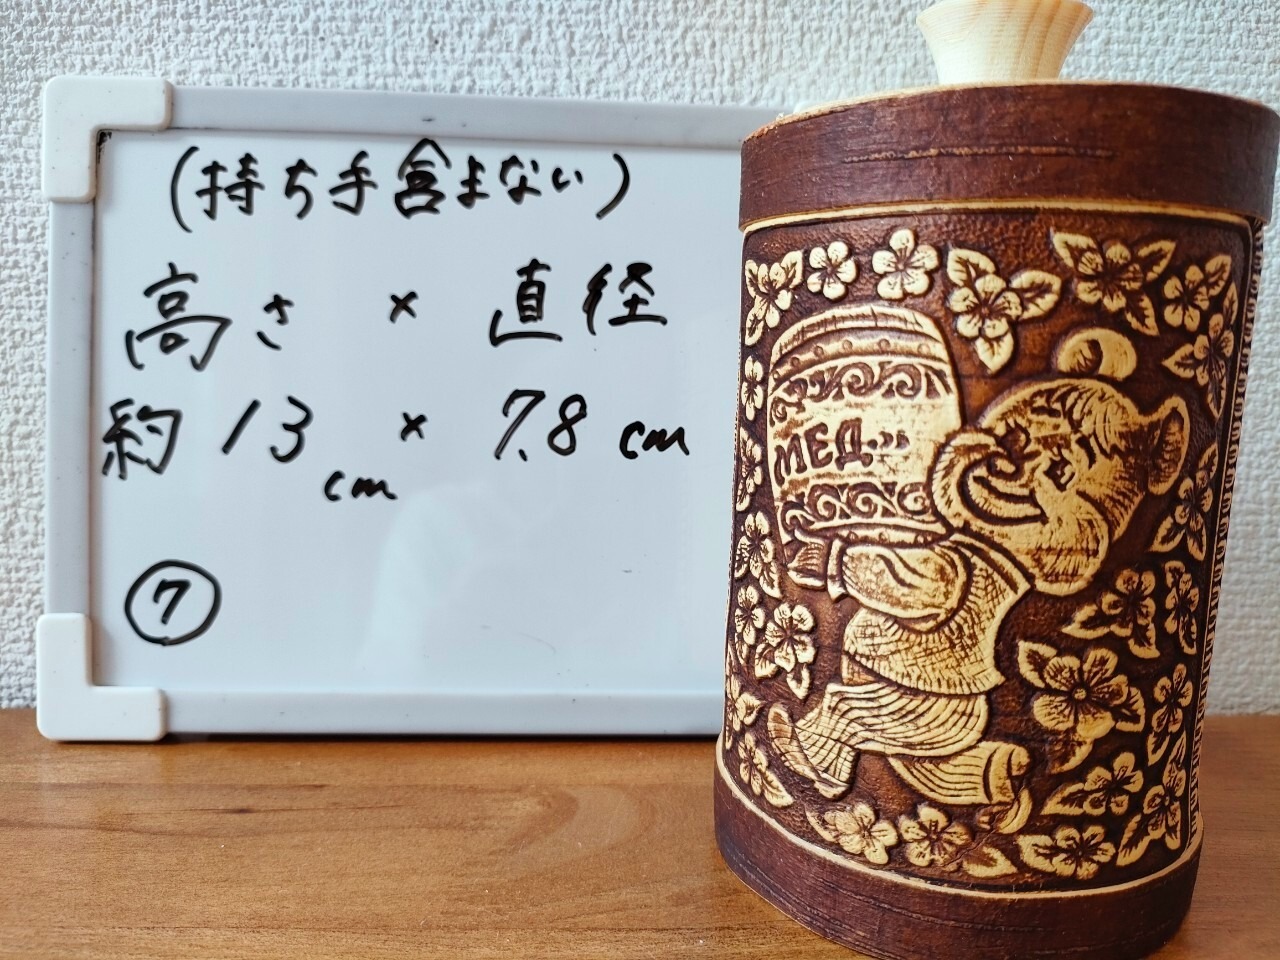 (持ち手含まない)
高さ × 直径
約13cm × 7.8cm
⑦
МЕД